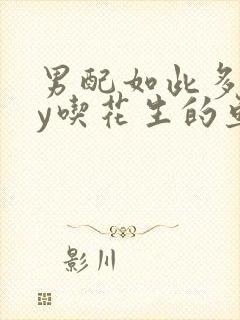 男配如此多
y喫花生的
影川